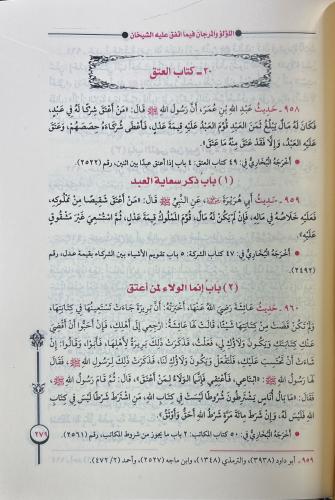 اللؤلؤ والمرجان فيما اتفق عليه الشيخان
٢٠- كتاب العتق
٩٥٨- حديث عَبْدِ اللهِ بْنِ عُمَرَ، أَنَّ رَسُولَ اللهِ ﷺ قَالَ: «مَنْ أَعْتَقَ شِرْكًا لَهُ فِي عَبْدٍ،
فَكَانَ لَهُ مَالٌ يَبْلُغُ ثَمَنَ العَبْدِ قُوِّمَ العَبْدُ عَلَيْهِ قِيمَةَ عَدْلٍ، فَأَعْطَى شُرَكَاءَهُ حِصَصَهُمْ، وَعَتَقَ
عَلَيْهِ، وَإِلَّا فَقَدْ عَتَقَ مِنْهُ مَا عَتَقَ».
• أخرجه البخاري في: ٤٩ كتاب العتق: ٤ باب إذا أعتق عبدًا بين اثنين، رقم (٢٥٢٢)
(١) باب ذكر سعاية العبد
٩٥٩- حديث أَبِي هُرَيْرَةَ، عَنِ النَّبِيِّ ﷺ، قَالَ: «مَنْ أَعْتَقَ شَقِيصًا مِنْ مَمْلُوكِهِ،
فَعَلَيْهِ خَلَاصُهُ فِي مَالِهِ، فَإِنْ لَمْ يَكُنْ لَهُ مَالٌ، قُوِّمَ المَمْلُوكُ قِيمَةَ عَدْلٍ، ثُمَّ اسْتُسْعِيَ غَيْرَ مَشْقُوقٍ
عَلَيْهِ».
• أخرجه البخاري في: ٤٧ كتاب الشركة: ٥ باب تقويم الأشياء بين الشركاء بقيمة عدل، رقم
(٢٤٩٢)
(٢) باب إنما الولاء لمن أعتق
٩٦٠- حديث عَائِشَةَ رَضِيَ اللهُ عَنْهَا، أَخْبَرَتْهُ: أَنَّ بَرِيرَةَ جَاءَتْ تَسْتَعِينُهَا فِي كِتَابَتِهَا،
وَلَمْ تَكُنْ قَضَتْ مِنْ كِتَابَتِهَا شَيْئًا، قَالَتْ لَهَا عَائِشَةُ: ارْجِعِي إِلَى أَهْلِكِ، فَإِنْ أَحَبُّوا أَنْ أَقْضِيَ
عَنْكِ كِتَابَتَكِ وَيَكُونَ وَلَاؤُكِ لِي، فَعَلْتُ، فَذَكَرَتْ ذَلِكَ بَرِيرَةُ لِأَهْلِهَا، فَأَبَوْا، وَقَالُوا: إِنْ
شَاءَتْ أَنْ تَحْتَسِبَ عَلَيْكِ، فَلْتَفْعَلْ وَيَكُونَ وَلَاؤُكِ لَنَا، فَذَكَرَتْ ذَلِكَ لِرَسُولِ اللهِ ﷺ، فَقَالَ
لَهَا رَسُولُ اللهِ ﷺ: «ابْتَاعِي، فَأَعْتِقِي، فَإِنَّمَا الوَلَاءُ لِمَنْ أَعْتَقَ». قَالَ: ثُمَّ قَامَ رَسُولُ اللهِ ﷺ،
فَقَالَ: «مَا بَالُ أُنَاسٍ يَشْتَرِطُونَ شُرُوطًا لَيْسَتْ فِي كِتَابِ اللهِ، مَنِ اشْتَرَطَ شَرْطًا لَيْسَ فِي كِتَابِ
اللهِ فَلَيْسَ لَهُ، وَإِنْ شَرَطَ مِائَةَ مَرَّةٍ شَرْطُ اللهِ أَحَقُّ وَأَوْثَقُ».
• أخرجه البخاري في: ٥٠ كتاب المكاتب: ٢ باب ما يجوز من شروط المكاتب، رقم (٢٥٦١)
٢٧٩
٩٥٩- أبو داود (٣٩٣٨)، والترمذي (١٣٤٨)، وابن ماجه (٢٥٢٧)، وأحمد (٤٧٢/٢).